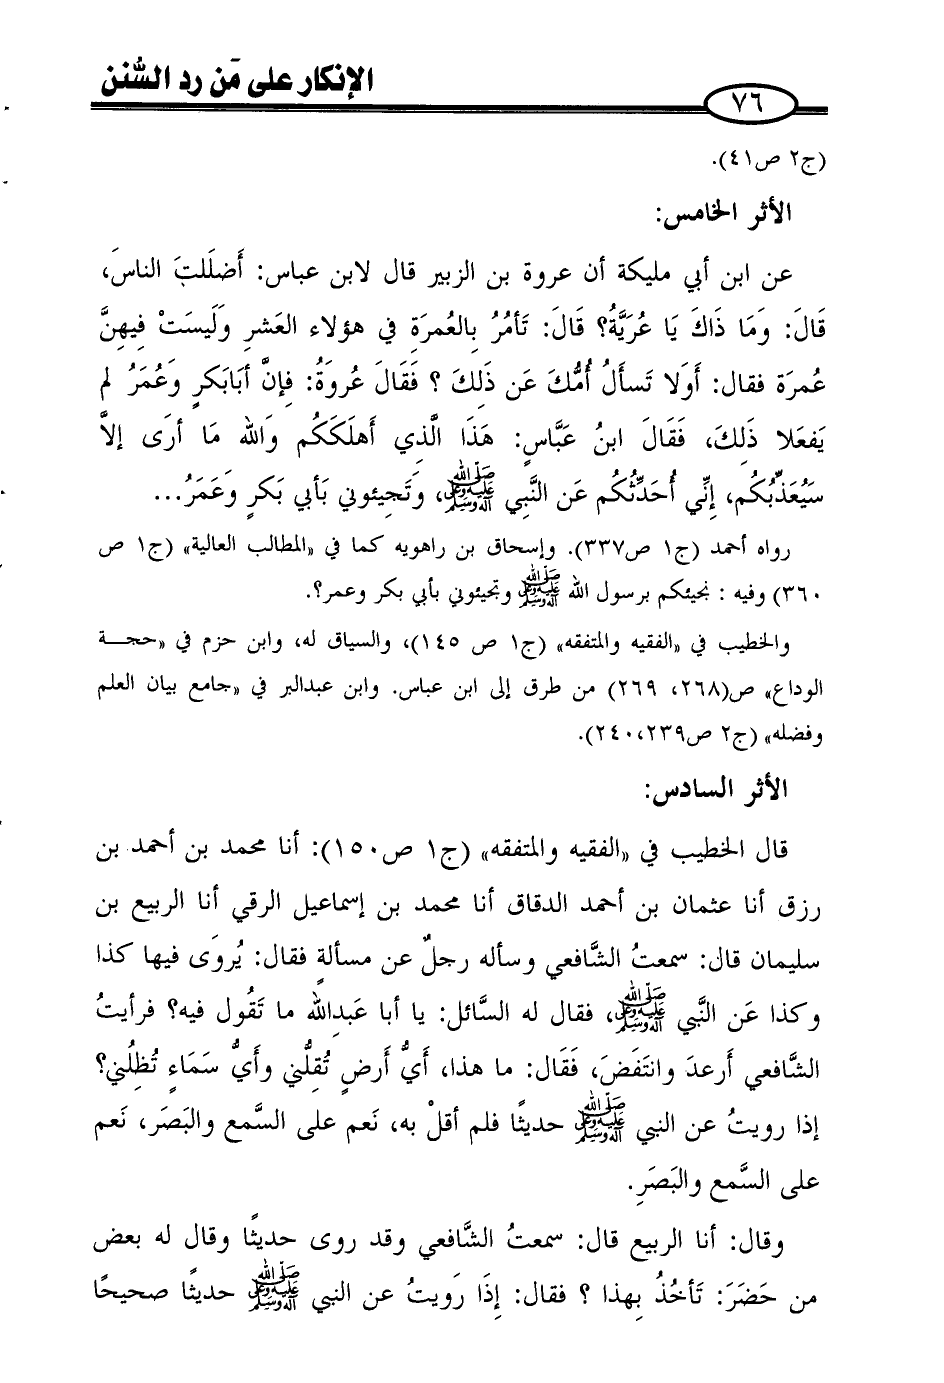 الإنكار على مَن رد السُّنن
٧٦
(ج٢ ص٤١).
الأثر الخامس:
عن ابن أبي مليكة أن عروة بن الزبير قال لابن عباس: أَضلَلتَ الناسَ،
قَالَ: وَمَا ذَاكَ يَا عُرَيَّةُ؟ قَالَ: تَأمُرُ بِالعُمرَةِ فِي هؤلاء العَشرِ وَلَيسَتْ فِيهِنَّ
عُمرَة فقال: أَوَلا تَسأَلُ أُمَّكَ عَن ذَلِكَ ؟ فَقَالَ عُروَةُ: فإنَّ أبَابَكرٍ وَعُمَرُ لم
يَفعَلا ذَلِكَ، فَقَالَ ابنُ عَبَّاسٍ: هَذَا الَّذِي أَهلَكَكُم وَالله مَا أرَى إلاَّ
سَيُعَذِّبُكُم، إِنِّي أُحَدِّثُكُم عَن النَّبِي ﷺ، وَتَجِيئونِي بَأبي بَكرٍ وَعَمَرُ...
رواه أحمد (ج١ ص٣٣٧). وإسحاق بن راهويه كما في «المطالب العالية» (ج١ ص
٣٦٠) وفيه : نجيئكم برسول الله ﷺ وتجيئوني بأبي بكر وعمر؟.
والخطيب في «الفقيه والمتفقه» (ج١ ص ١٤٥)، والسياق له، وابن حزم في «حجـــة
الوداع» ص(٢٦٨، ٢٦٩) من طرق إلى ابن عباس. وابن عبدالبر في «جامع بيان العلم
وفضله» (ج٢ ص٢٣٩،٢٤٠).
الأثر السادس:
قال الخطيب في «الفقيه والمتفقه» (ج١ ص١٥٠): أنا محمد بن أحمد بن
رزق أنا عثمان بن أحمد الدقاق أنا محمد بن إسماعيل الرقي أنا الربيع بن
سليمان قال: سمعتُ الشَّافعي وسأله رجلٌ عن مسألةٍ فقال: يُروَى فيها كذا
وكذا عَن النَّبي ﷺ، فقال له السَّائل: يا أبا عَبدِالله ما تَقُول فيه؟ فرأيتُ
الشَّافعي أَرعدَ وانتَفَضَ، فَقَال: ما هذا، أَيُّ أرضٍ تُقِلُّني وأَيُّ سَمَاءٍ تُظِلُّني؟
إذا رويتُ عن النبي ﷺ حديثًا فلم أقلْ به، نَعم على السَّمع والبَصَر، نَعم
على السَّمع والبَصَرِ.
وقال: أنا الربيع قال: سمعتُ الشَّافعي وقد روى حديثًا وقال له بعض
من حَضَرَ: تَأخُذُ بِهذا ؟ فقال: إِذَا رَويتُ عن النبي ﷺ حديثًا صحيحًا